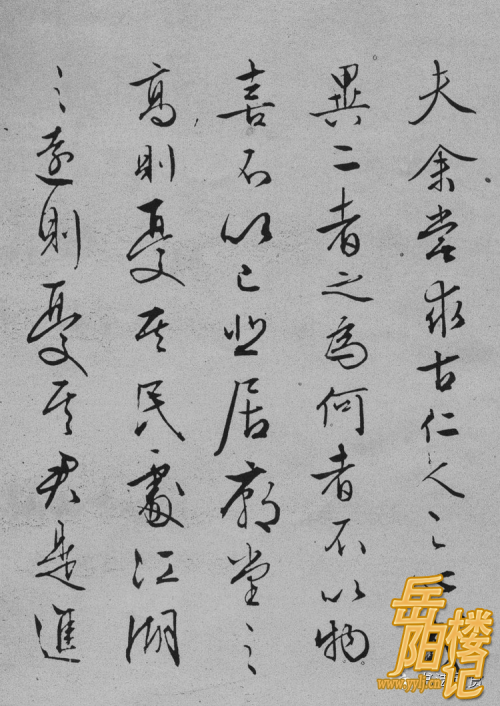 夫余嘗求古仁人之心
異二者之為何者不以物
喜不以己悲居廟堂之
高則憂其民處江湖
之遠則憂其君是進
岳阳楼记
www.yylj.cn